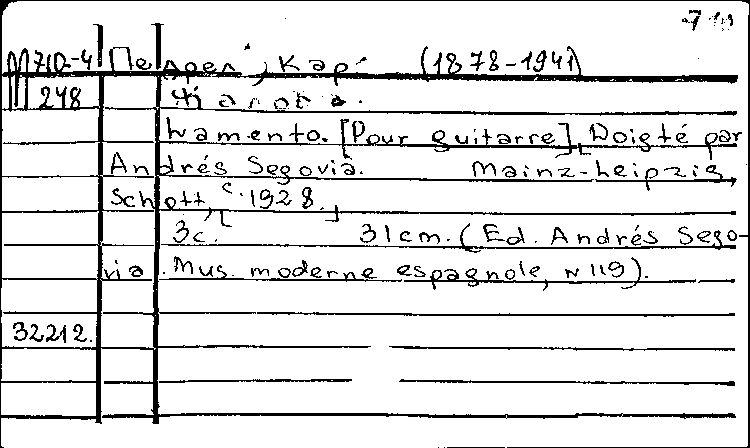 710-4 Педрель, Кар. (1878-1941)
248 Жалоба.
Lamento. [Pour guitarre], Doigté par
Andrés Segovia. Mainz-Leipzig,
Schott, [c. 1928.]
3c. 31cm. (Ed. Andrés Sego-
via. Mus. moderne espagnole, N 119).
32212.